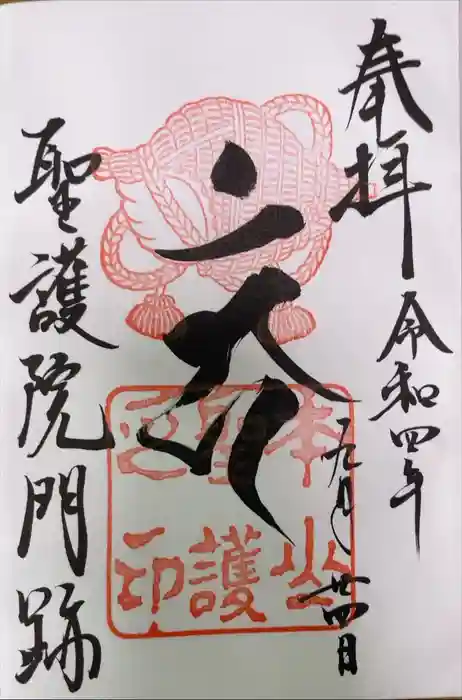 奉拝
令和四年
月廿四日
聖護院門跡
本山
聖護
印